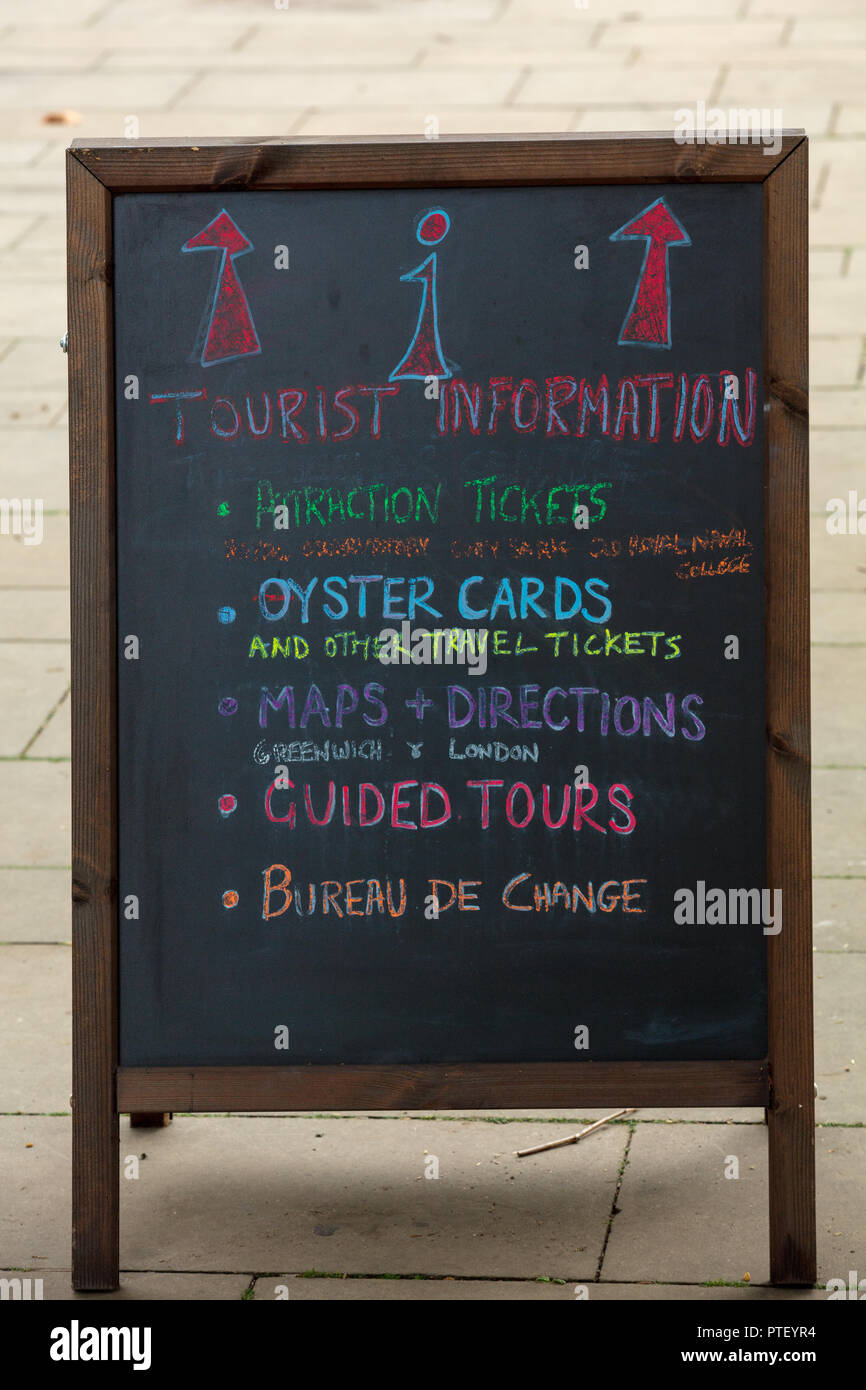 i
TOURIST INFORMATION
• ATTRACTION TICKETS
ROYAL OBSERVATORY CUTTY SARK OLD ROYAL NAVAL
COLLEGE
• OYSTER CARDS
AND OTHER TRAVEL TICKETS
• MAPS + DIRECTIONS
GREENWICH & LONDON
• GUIDED TOURS
• BUREAU DE CHANGE
alamy
Image ID: PTEYR4
www.alamy.com